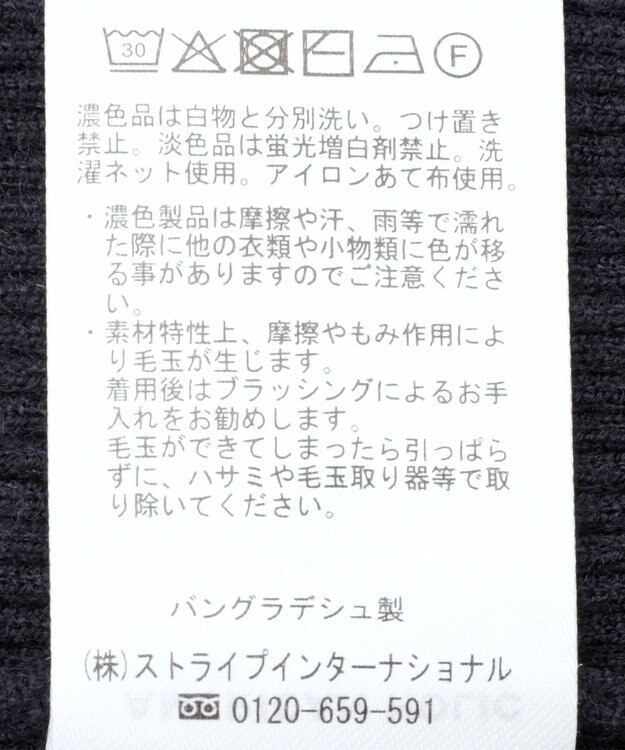 30
F
濃色品は白物と分別洗い。つけ置き
禁止。淡色品は蛍光増白剤禁止。洗
濯ネット使用。アイロンあて布使用。
・濃色製品は摩擦や汗、雨等で濡れ
た際に他の衣類や小物類に色が移
る事がありますのでご注意くださ
い。
・素材特性上、摩擦やもみ作用によ
り毛玉が生じます。
着用後はブラッシングによるお手
入れをお勧めします。
毛玉ができてしまったら引っぱら
ずに、ハサミや毛玉取り器等で取
り除いてください。
バングラデシュ製
(株)ストライプインターナショナル
0120-659-591